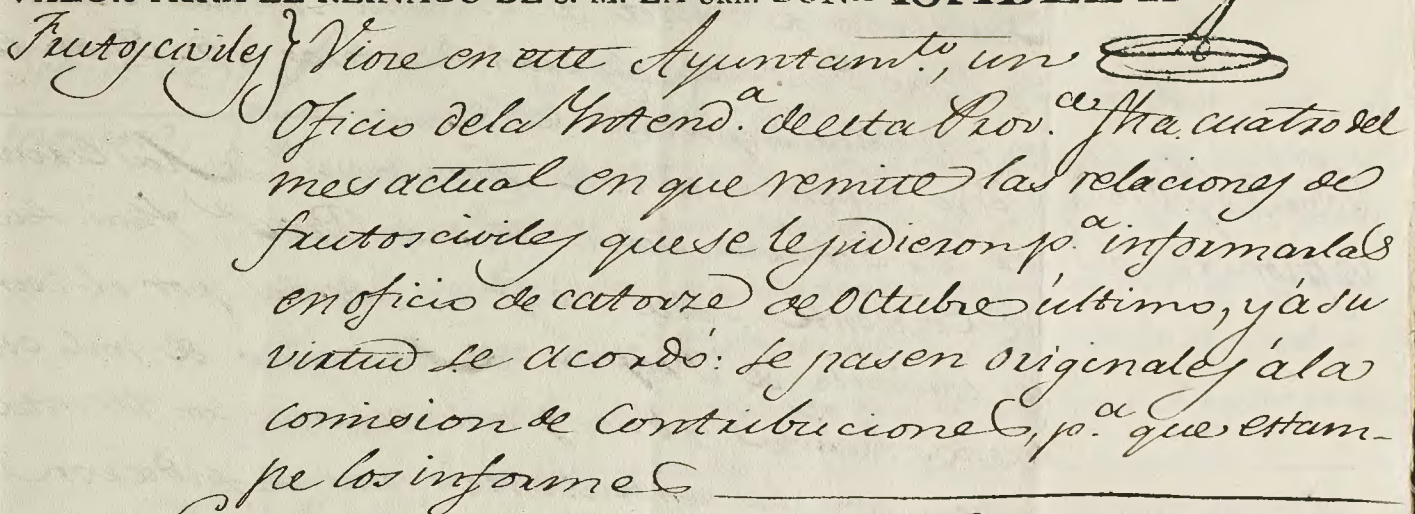 VALGA PARA EL REINADO DE S. M. LA SRA. DOÑA ISABEL II
Frutos civiles} Viose en este Ayuntam.to, un
Oficio dela Yntend.a deesta Prov.a fha. cuatro del
mes actual en que remite las relaciones de
frutos civiles que se le pidieron p.a informarlas
en oficio de catorze de Octubre último, y á su
virtud se acordó: se pasen originales á la
comision de Contribuciones, p.a que estam-
pe los informes